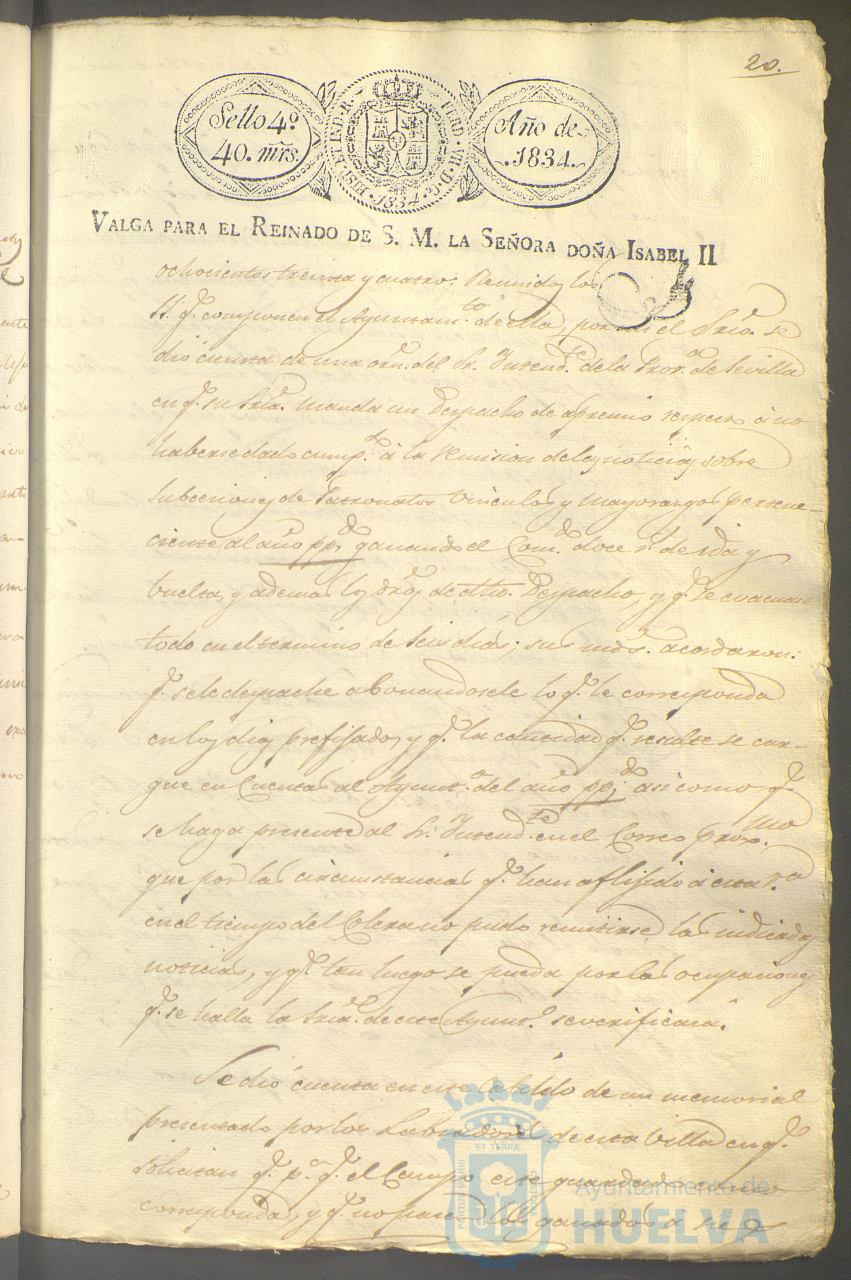 20.
Sello 4º
40. mrs.
HISP. ET IND. R. FERD. VII. D. G.
1834
Año de
1834.
VALGA PARA EL REINADO DE S. M. LA SEÑORA DOÑA ISABEL II
ochocientos treinta y cuatro: Reunidos los
SS. q.e componen el Ayuntam.to de ella, por mi el Srio. se
dió cuenta de una orn. del Sr. Intend.te de la Prov.a de Sevilla
en q.e su Sria. manda un Despacho de apremio respecto á no
haberse dado cump.to á la remision de las noticias sobre
Subceciones de Patronatos vinculos y mayorazgos pertene-
ciente al año pp.do ganando el Com.do doce r.s de ida y
buelta, y ademas los dros. de dho. Despacho, y q.e se evacuase
todo en el termino de seis dias; sus mds. acordaron:
q.e se le despache abonandosele lo q.e le corresponda
en los dias prefijados, y q.e la cantidad q.e resulte se car-
gue en Cuentas al Ayunt.o del año pp.do asi como q.e
se haga presente al Sr. Intend.te en el Correo prox.mo
que por las circunstancias q.e han aflijido á esta V.a
en el tiempo del Colera no pudo remitirse las indicadas
noticias, y q.e tan luego se pueda por las ocupaciones
q.e se halla la Sria. de este Ayunt.o se verificará.
Se dió cuenta en este Cabildo de un memorial
presentado por los Labradores de esta Villa en q.e
solicitan q.e p.a q.e el Campo esté guardado
corresponda, y q.e no
los ganados á
Ayuntamiento de
HUELVA